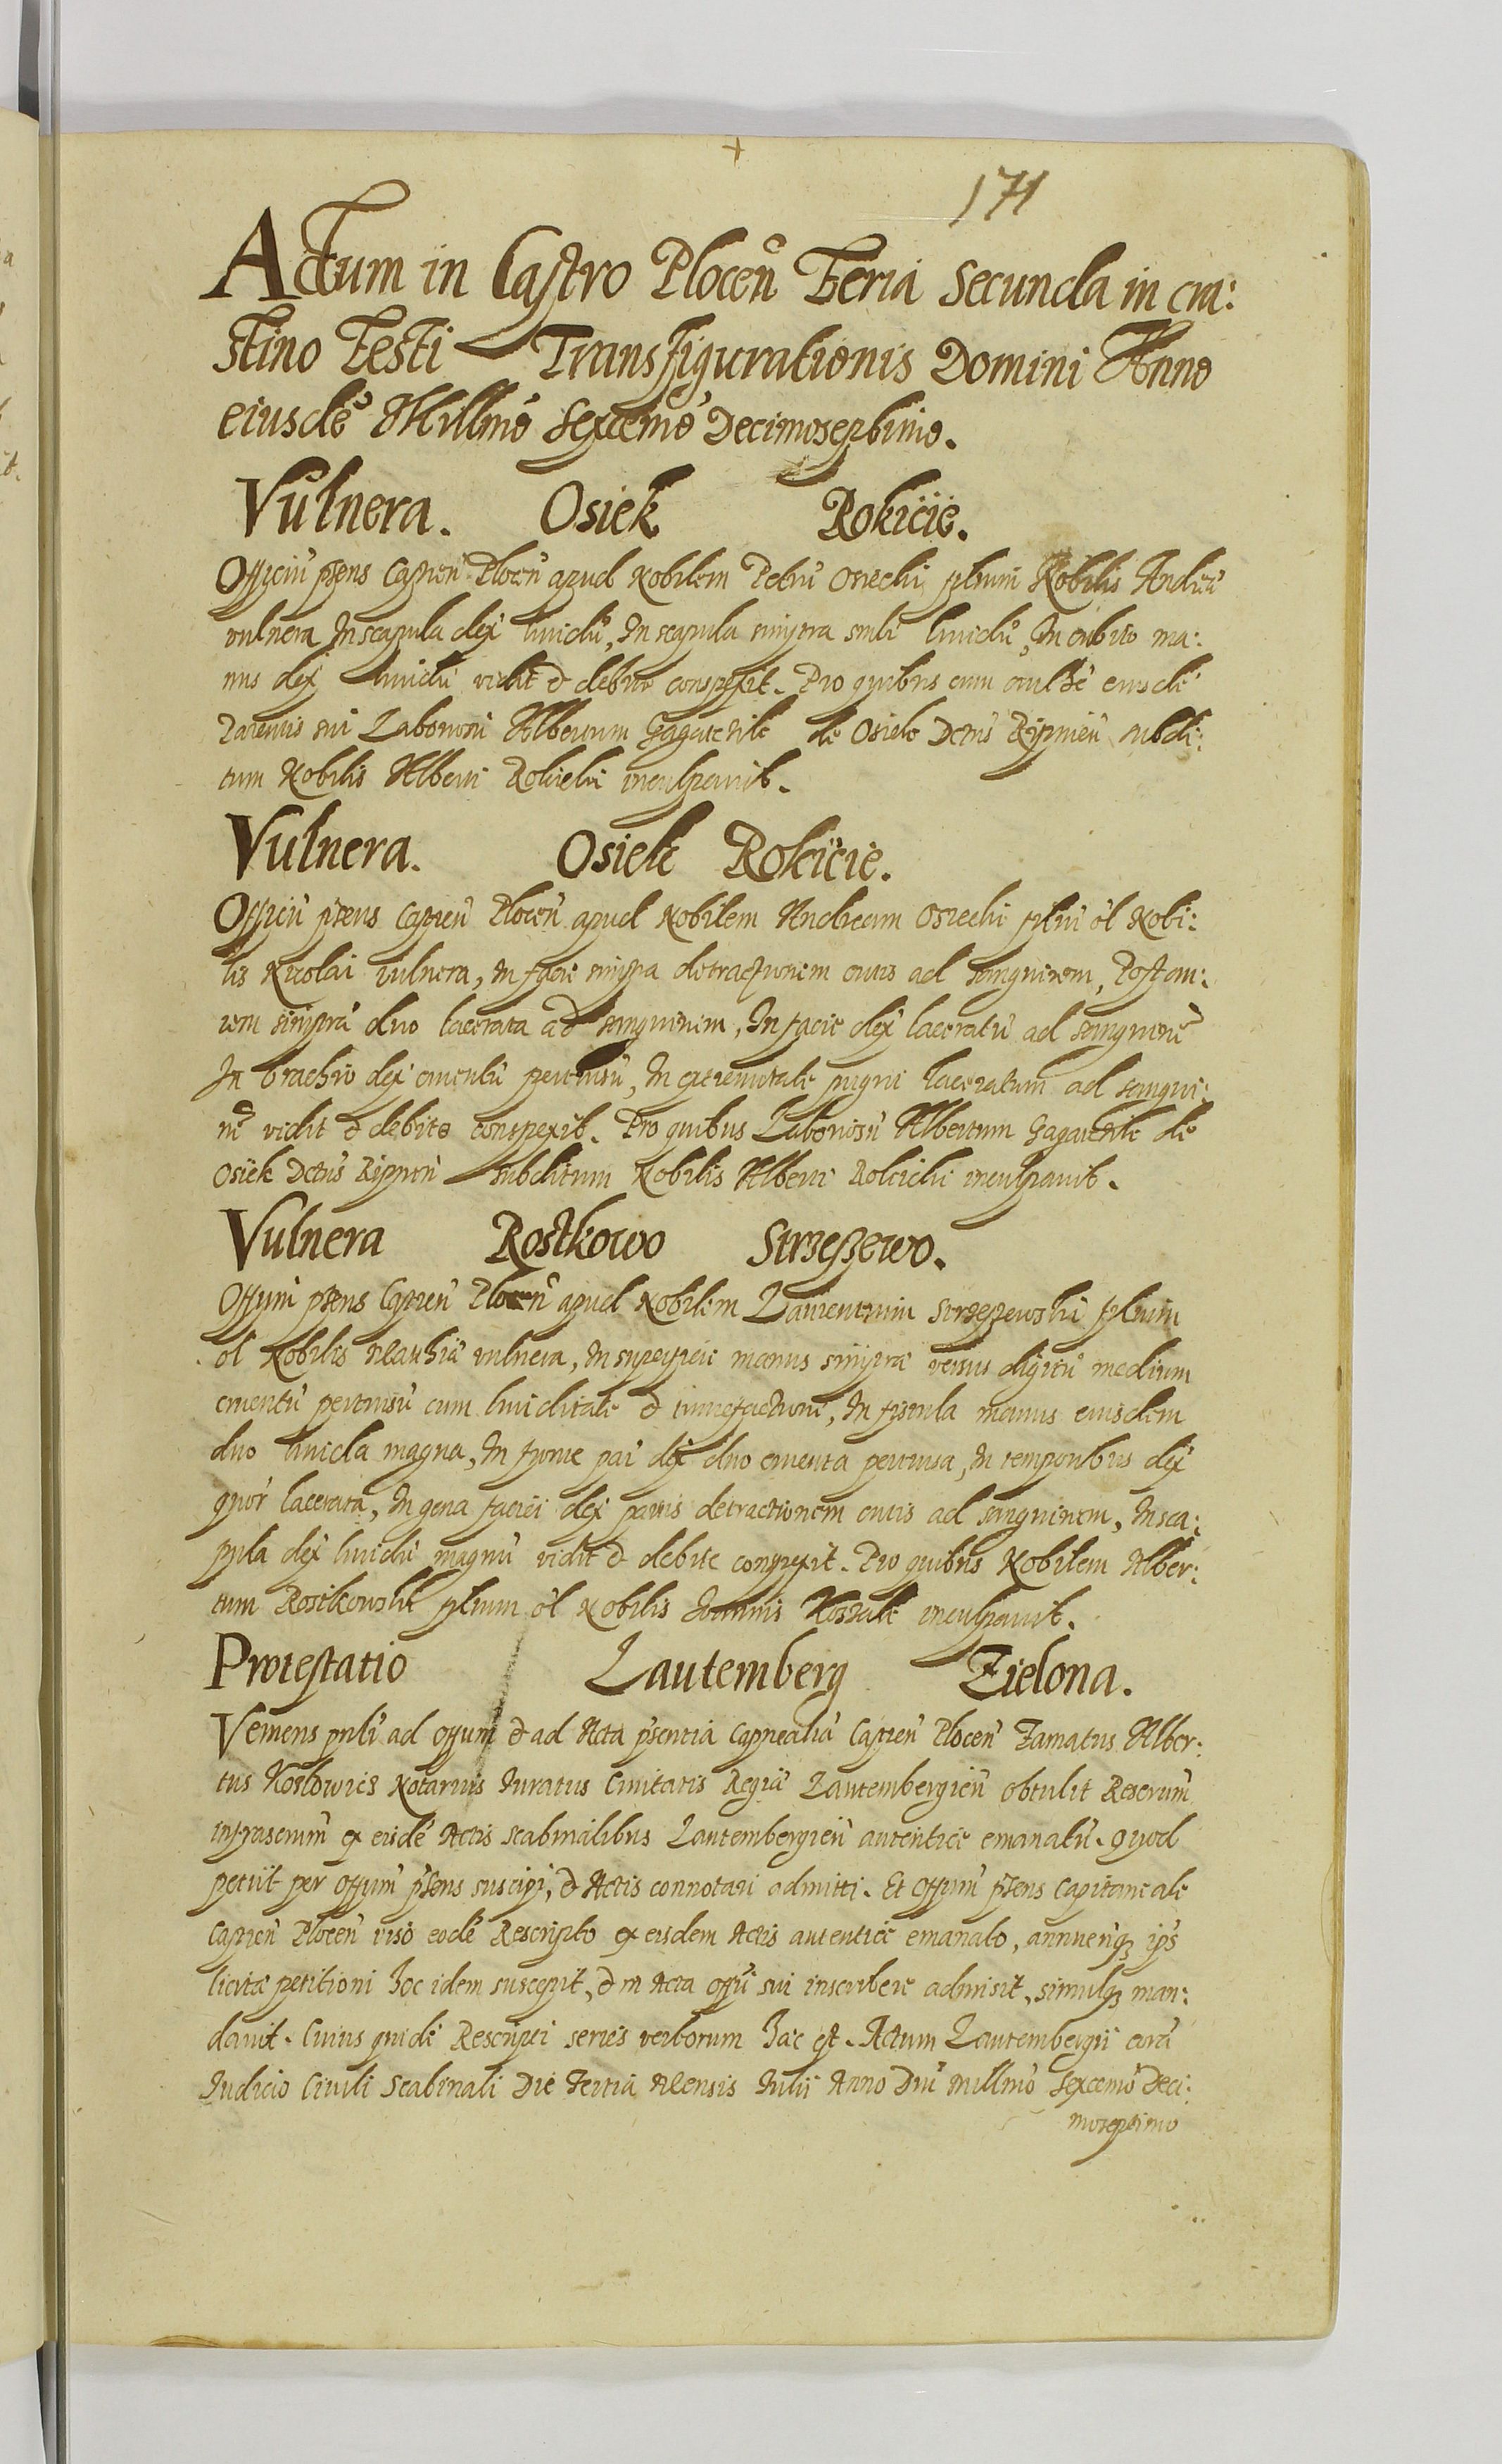 171
Actum in Castro Plocen̄ Feria Secunda in cra:
stino Festi Transfigurationis Domini Anno
eiusdē Millmo Sexcemo Decimoseptimo.
Vulnera. Osiek Rokicie.
Officiū pn̄s Capnen̄ Plocen̄ apud Nobilem Petrū Osiecki filium Nobilis Andreæ
vulnera In scapula dex lividū, In scapula sinistra lividū, In cubito ma:
nus dex lividū vidit & debite conspexit. Pro quibus eum eiusdē
Parentis sui Laboriosū Albertum de Osiek Dctūs Ripinen̄ subdi:
tum Nobilis Alberti Rokicki inculpavit.
Vulnera. Osiek Rokicie.
Officiū pn̄s Capnen̄ Plocen̄ apud Nobilem Andream Osiecki filiū ol Nobi:
lis Nicolai vulnera, In facie sinistra detractionem cutis ad sanguinem, Post au:
rem sinistrā duo lacerata ad sanguinem, In facie dex laceratū ad sanguinē
In brachio dex cruentū pertusū, In extremitate laceratum ad sangui:
nē vidit & debite conspexit. Pro quibus Laboriosū Albertum de
Osiek Dctūs Ripinen̄ subditum Nobilis Alberti Rokicki inculpavit.
Vulnera Rostkowo Strzeszewo.
Offium pn̄s Capnen̄ Plocen̄ apud Nobilem Laurentium Strzeszewski filium
ol Nobilis Mathiæ vulnera, In superficie manus sinistræ versus digitū medium
cruentū pertusū cum lividitate & tumefactione, In fistula manus eiusdem
duo livida magna, In fronte dex duo cruenta pertusa, In temporibus dex
quor lacerata, In gena faciei dex partis detractionem cutis ad sanguinem, In sca:
pula dex lividū magnū vidit & debite conspexit. Pro quibus Nobilem Alber:
tum Rostkowski filium ol Nobilis Joannis inculpavit.
Protestatio Lautemberg Zielona.
Veniens pnlr ad offium & ad Acta pn̄sentia Capnealia Capnen̄ Plocen̄ Famatus Alber:
tus Koslowics Notarius Iuratus Civitatis Regiæ Lautembergien̄ obtulit Rescrum
infrascrum ex eisdē Actis scabinalibus Lautembergien̄ autentice emanatū. quod
petiit per offium pn̄s suscipi, & Actis connotari admitti. Et offium pn̄s Capitaneale
Capnen̄ Plocen̄ viso eodē Rescripto ex eisdem Actis autentice emanato, annuenq3 ips
licitæ petitioni hoc idem suscepit, & in Acta offii sui inscribere admisit, simulq3 man:
davit. Cuius quidē Rescripti series verborum hæc est. Actum Lautembergii corā
Iudicio Civili Scabinali Die Tertia Mensis Iulii Anno Dni millmo Sexcemo Deci:
moseptimo